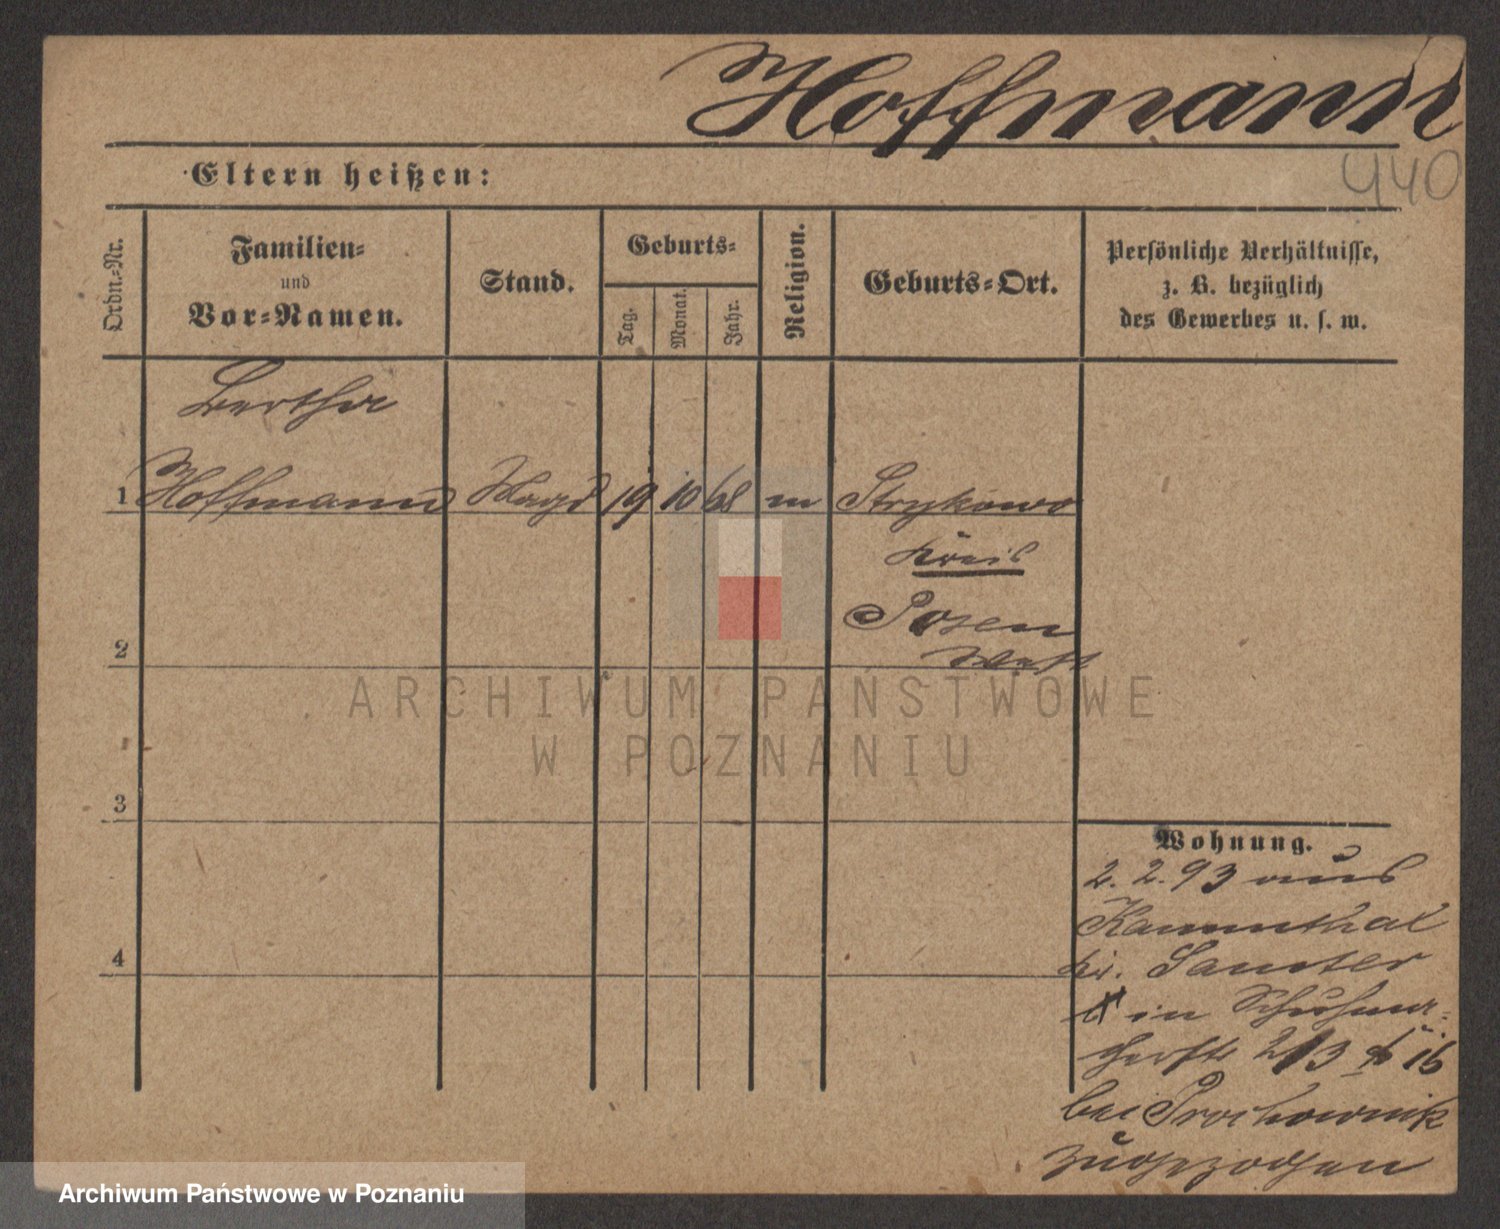 Hoffmann
440
Eltern heißen:
Ordn.-Nr.
Familien-
und
Vor-Namen.
Stand.
Geburts-
Tag.
Monat.
Jahr.
Religion.
Geburts-Ort.
Persönliche Verhältnisse,
z. B. bezüglich
des Gewerbes u. s. w.
Bertha
1 Hoffmann Magd 19 10 68 m Strykowo
Kreis
Posen
West
2
3
4
Wohnung.
2. 2. 93 aus
Kammthal
Kr. Samter
in Schuhma-
cherstr 213 16
bei Prochownik
zugezogen
ARCHIWUM PAŃSTWOWE
W POZNANIU
Archiwum Państwowe w Poznaniu